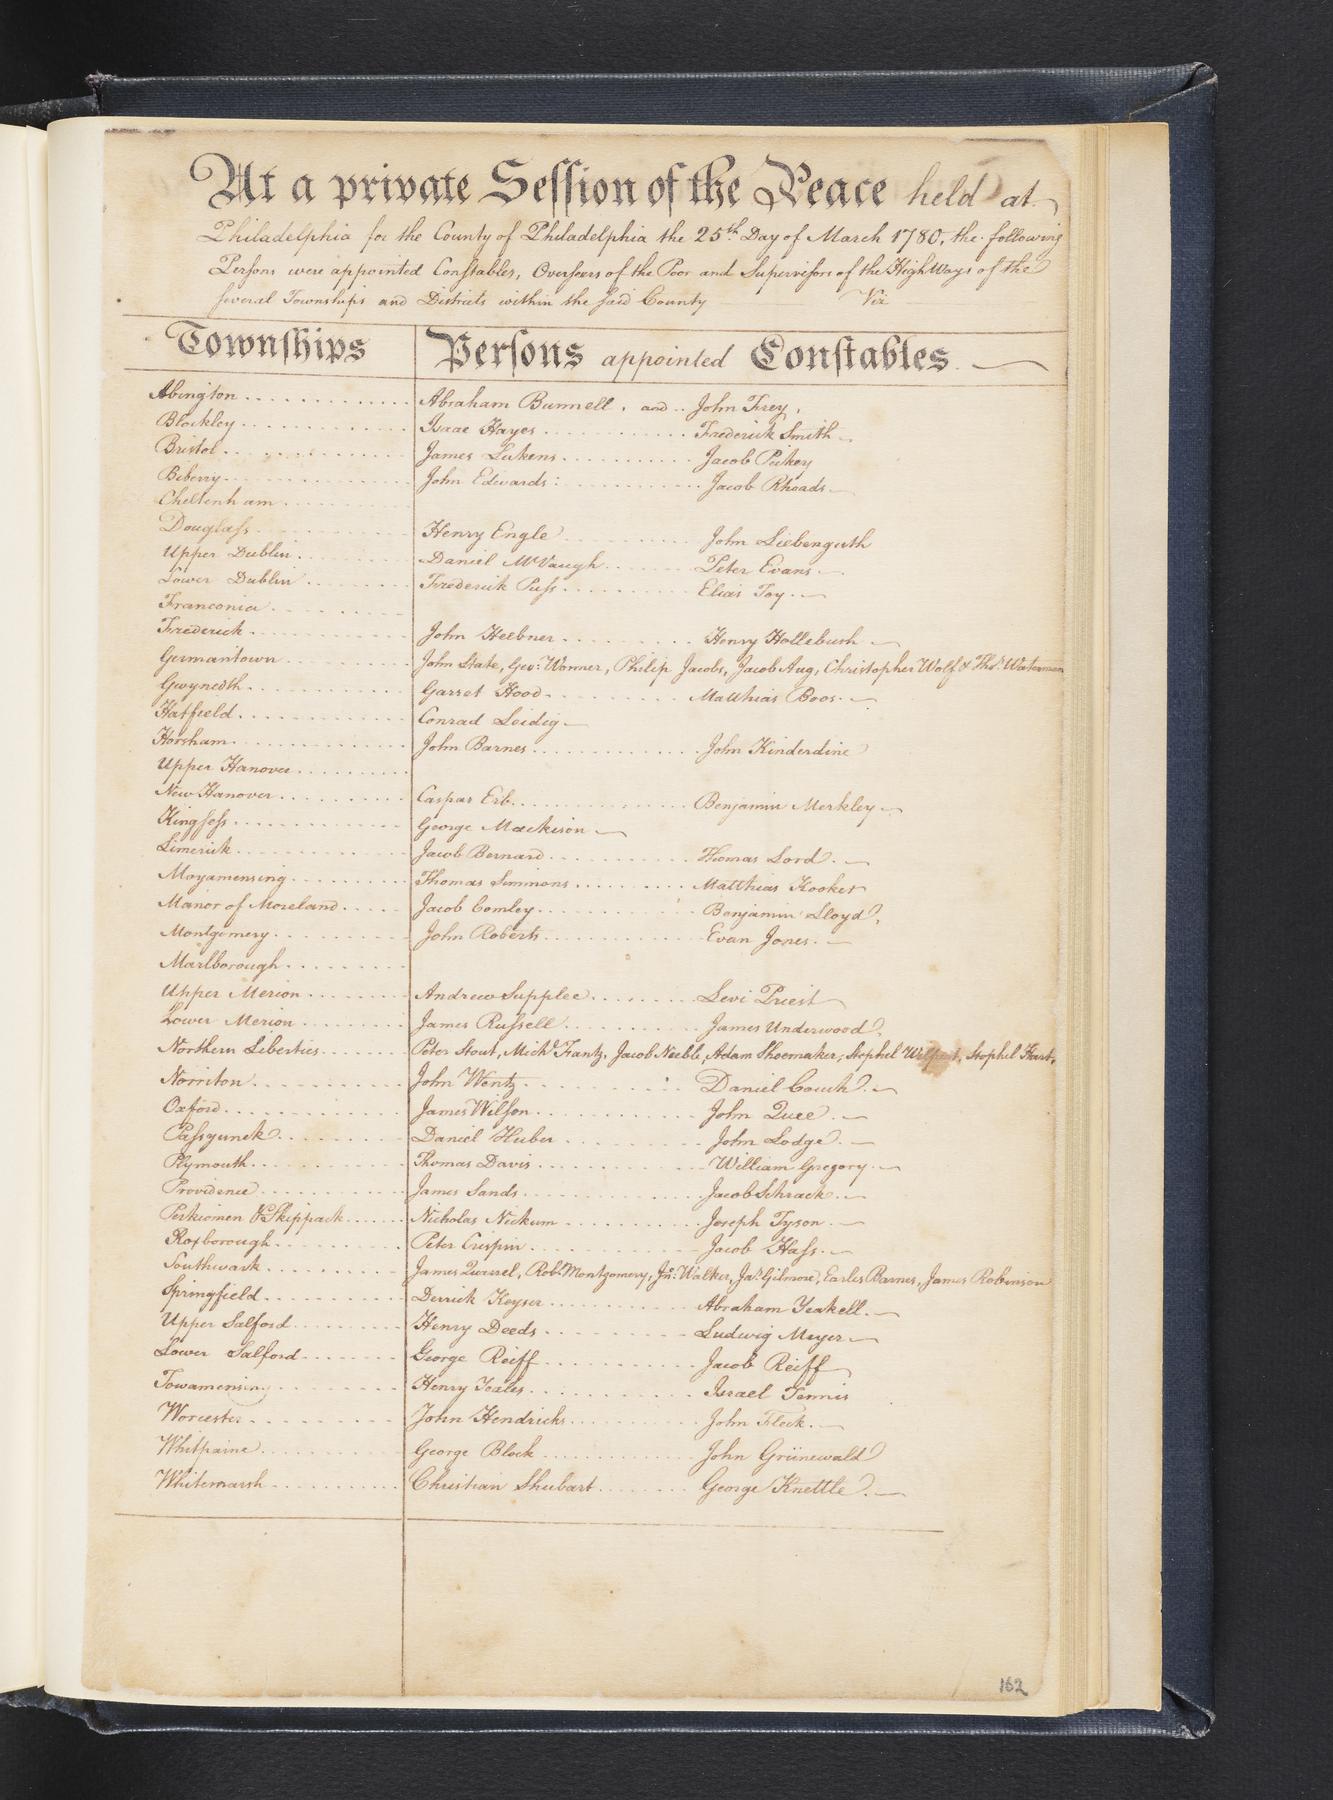 At a private Seſſion of the Peace held at
Philadelphia for the County of Philadelphia the 25th. Day of March 1780, the following
Persons were appointed Conſtables, Overſeers of the Poor and Superviſors of the High Ways of the
ſeveral Townships and Districts within the ſaid County Viz
Townſhips Perſons appointed Conſtables.
Abington Abraham Bunnell, and John Frey,
Blockley Isaac Hayes Frederick Smith
Bristol James Lukens Jacob
Biberry John Edwards: Jacob Rhoads
Cheltenham
Douglaſs Henry Engle John Liebenguth
Upper Dublin Daniel McVaugh Peter Evans
Lower Dublin Frederick Puſs Elias Toy
Franconia
Frederick John Heebner Henry Hollebush
Germantown John State, Geo: Wonner, Philip Jacobs, Jacob Aug, Christopher Wolf & Thos. Waterman
Gwynedth Garret Hood Matthias Boos
Hatfield Conrad Leidig
Horsham John Barnes John Kinderdine
Upper Hanover
New Hanover Caspar Erb Benjamin Merkley
Kingſeſs George Mackison
Limerick Jacob Bernard Thomas Lord
Moyamensing Thomas Simmons Matthias Kooker
Manor of Moreland Jacob Comley Benjamin Lloyd,
Montgomery John Roberts Evan Jones
Marlborough
Upper Merion Andrew Supplee Levi Priest
Lower Merion James Ruſsell James Underwood.
Northern Liberties Peter Stout, Michl. Frantz, Jacob Neible, Adam Shoemaker, Stophel Stophel Hart,
Norriton John Wentz Daniel Couch
Oxford James Wilſon John Quee
Paſsyunck Daniel Huber John Lodge
Plymouth Thomas Davis William Gregory
Providence James Sands Jacob Schrack
Perkiomen & Skippack Nicholas Nickum Joseph Tyson
Roxborough Peter Crispin Jacob Haſs
Southwark James Quarrel, Robt. Montgomery, Jno. Walker, Jas. Gilmore, Earles Barnes, James Robinson
Springfield Derrick Keyser Abraham Yeakell
Upper Salford Henry Deeds Ludwig Meyer
Lower Salford George Reiff Jacob Reiff
Towamensing Henry Yeates Israel Tennis
Worcester John Hendricks John Fleck
Whitpaine George Block John Grünewald
Whitemarsh Christian Shubart George Knettle
162